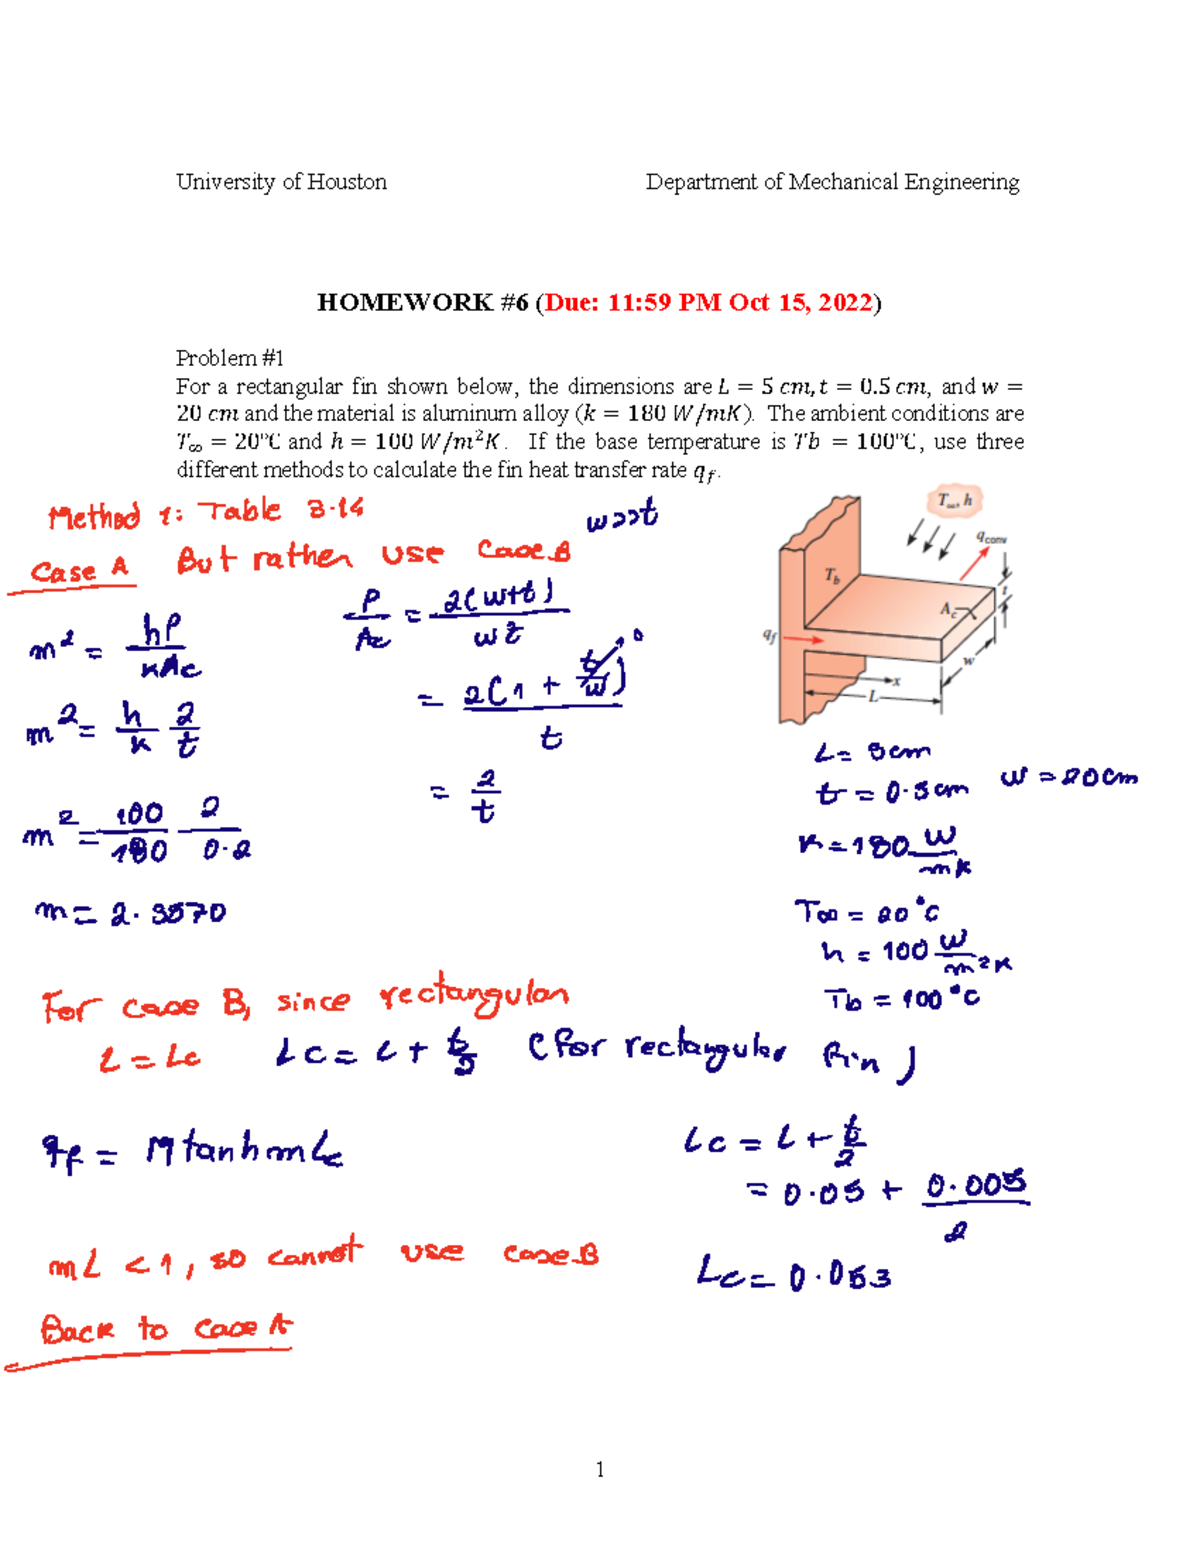 University of Houston Department of Mechanical Engineering
HOMEWORK #6 (Due: 11:59 PM Oct 15, 2022)
Problem #1
For a rectangular fin shown below, the dimensions are L = 5 cm, t = 0.5 cm, and w =
20 cm and the material is aluminum alloy (k = 180 W/mK). The ambient conditions are
T∞ = 20°C and h = 100 W/m²K. If the base temperature is Tb = 100°C, use three
different methods to calculate the fin heat transfer rate qf.
Method 1: Table 3.14
w>>t
Case A But rather use Case B
m² = hP/kAc
P/Ac = 2(w+t)/wt
= 2(1 + t/w)/t → 0
m² = h/k 2/t
= 2/t
m² = 100/180 2/0.2
m = 2.3570
T∞, h
qconv
Tb
t
Ac
qf
w
x
L
L = 5cm
t = 0.5cm w = 20cm
k = 180 W/mK
T∞ = 20°C
h = 100 W/m²K
Tb = 100°C
For case B, since rectangular
L = Lc Lc = L + t/2 (for rectangular fin)
qf = M tanh mLc
Lc = L + t/2
= 0.05 + 0.005/2
Lc = 0.053
mL < 1, so cannot use case B
Back to case A
1